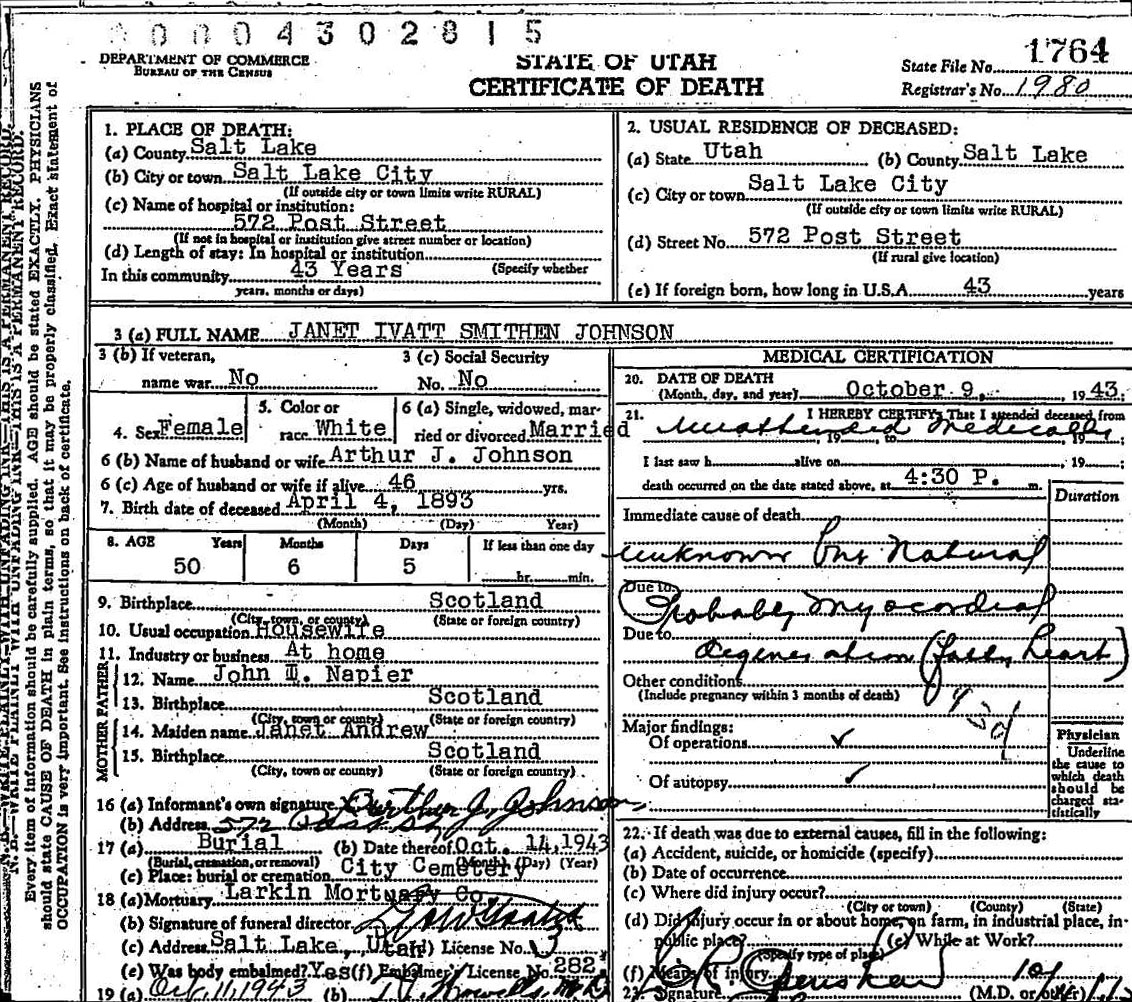 0 0 0 0 4 3 0 2 8 1 5
DEPARTMENT OF COMMERCE
BUREAU OF THE CENSUS
STATE OF UTAH
CERTIFICATE OF DEATH
State File No. 1764
Registrar's No. 1980
N. B.—WRITE PLAINLY WITH UNFADING INK—THIS IS A PERMANENT RECORD.
Every item of information should be carefully supplied. AGE should be stated EXACTLY. PHYSICIANS
should state CAUSE OF DEATH in plain terms, so that it may be properly classified. Exact statement of
OCCUPATION is very important. See instructions on back of certificate.
1. PLACE OF DEATH:
(a) County Salt Lake
(b) City or town Salt Lake City
(If outside city or town limits write RURAL)
(c) Name of hospital or institution:
572 Post Street
(If not in hospital or institution give street number or location)
(d) Length of stay: In hospital or institution
(Specify whether
In this community 43 Years
years, months or days)
2. USUAL RESIDENCE OF DECEASED:
(a) State Utah (b) County Salt Lake
(c) City or town Salt Lake City
(If outside city or town limits write RURAL)
(d) Street No. 572 Post Street
(If rural give location)
(e) If foreign born, how long in U.S.A. 43 years
3 (a) FULL NAME JANET IVATT SMITHEN JOHNSON
3 (b) If veteran,
name war No
3 (c) Social Security
No. No
4. Sex Female
5. Color or
race White
6 (a) Single, widowed, mar-
ried or divorced Married
6 (b) Name of husband or wife Arthur J. Johnson
6 (c) Age of husband or wife if alive 46 yrs.
7. Birth date of deceased April 4, 1893
(Month) (Day) Year)
8. AGE Years Months Days If less than one day
50 6 5 hr. min.
9. Birthplace Scotland
(City, town, or county) (State or foreign country)
10. Usual occupation Housewife
11. Industry or business At home
FATHER
12. Name John T. Napier
13. Birthplace Scotland
(City, town or county) (State or foreign country)
MOTHER
14. Maiden name Janet Andrew
15. Birthplace Scotland
(City, town or county) (State or foreign country)
16 (a) Informant's own signature Arthur J. Johnson
(b) Address 572 Post St
17 (a) Burial (b) Date thereof Oct. 14, 1943
(Burial, cremation, or removal) (Month) (Day) (Year)
(c) Place: burial or cremation City Cemetery
18 (a) Mortuary Larkin Mortuary Co.
(b) Signature of funeral director
(c) Address Salt Lake, Utah (d) License No. 3
(e) Was body embalmed? Yes (f) Embalmer's License No. 282
19 (a) Oct. 11, 1943 (b)
MEDICAL CERTIFICATION
20. DATE OF DEATH
(Month, day, and year) October 9, 1943.
21. I HEREBY CERTIFY, That I attended deceased from
Unattended Medically
, 19 , to , 19 ;
I last saw h alive on , 19 ;
death occurred on the date stated above, at 4:30 P. m.
Duration
Immediate cause of death
Unknown but Natural
Due to
Probably Myocardial
Due to
degeneration (fatty heart)
Other conditions
(Include pregnancy within 3 months of death)
Major findings:
Of operations ✓
Of autopsy ✓
Physician
Underline
the cause to
which death
should be
charged sta-
tistically
22. If death was due to external causes, fill in the following:
(a) Accident, suicide, or homicide (specify)
(b) Date of occurrence
(c) Where did injury occur?
(City or town) (County) (State)
(d) Did injury occur in or about home, on farm, in industrial place, in-
public place? (e) While at Work?
(Specify type of place)
(f) Means of injury
23. Signature (M.D. or other)